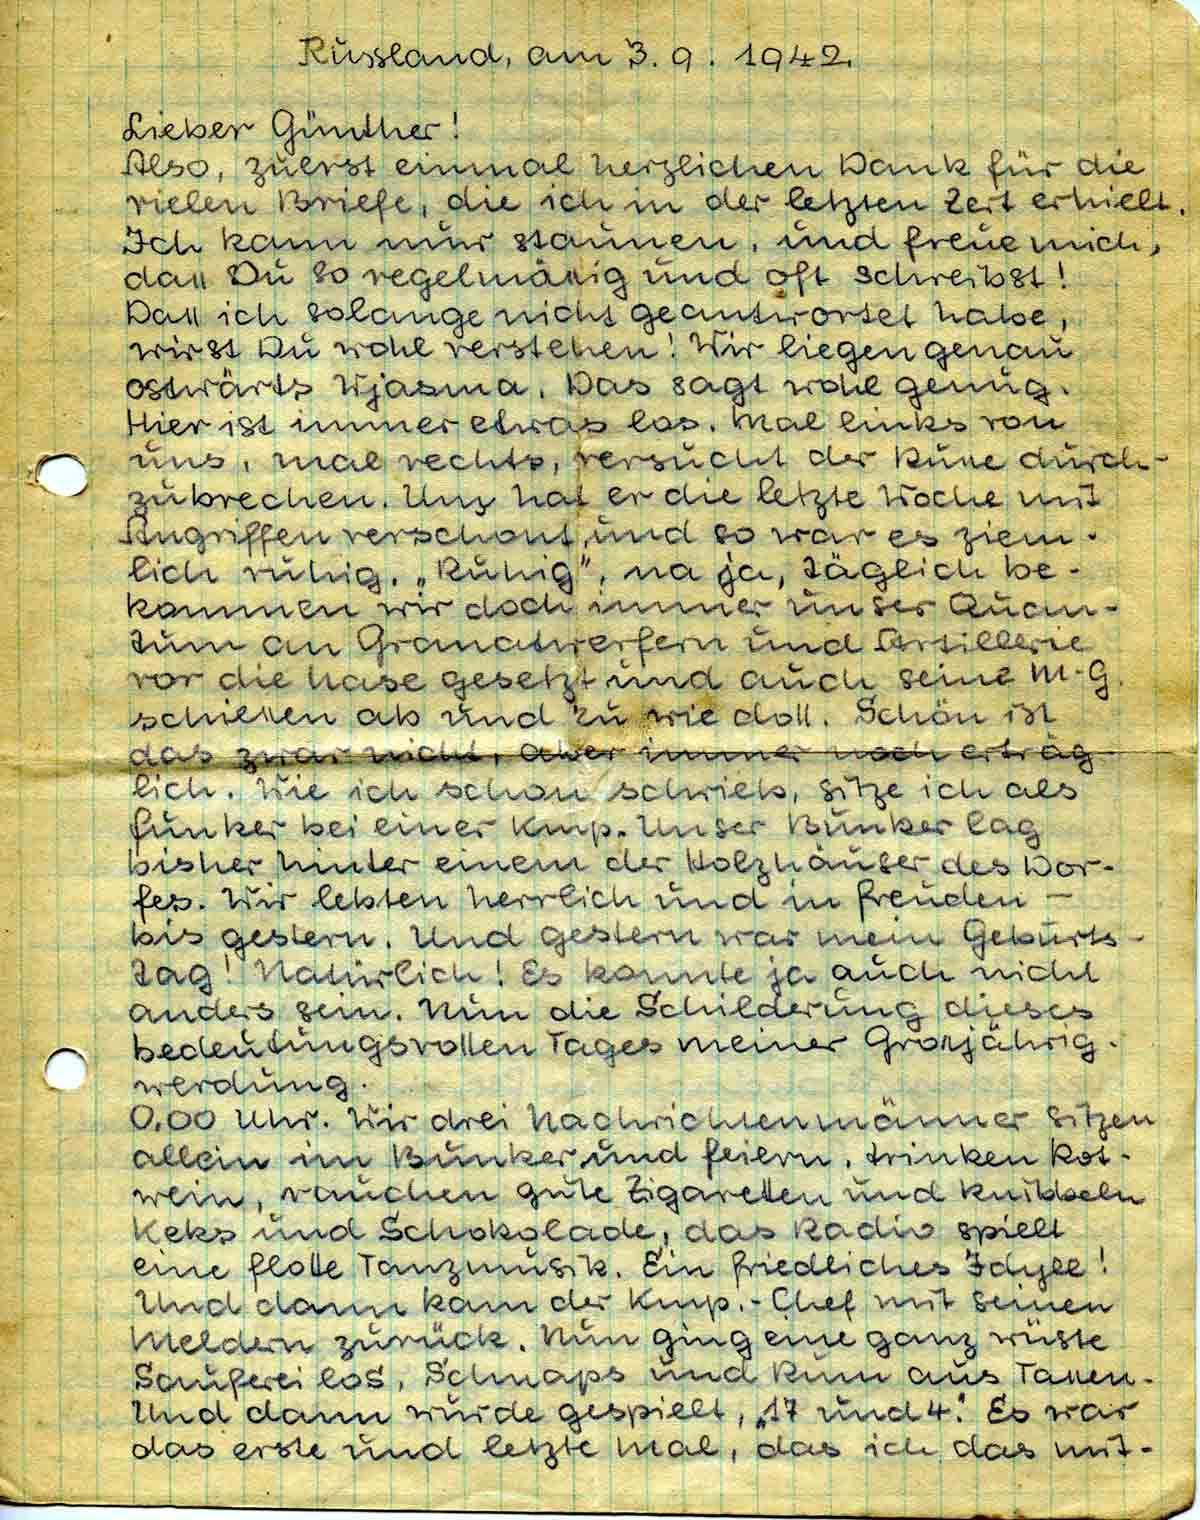 Russland, am 3. 9. 1942.
Lieber Günther!
Also, zuerst einmal herzlichen Dank für die
vielen Briefe, die ich in der letzten Zeit erhielt.
Ich kann nur staunen, und freue mich,
daß Du so regelmäßig und oft schreibst!
Daß ich solange nicht geantwortet habe,
wirst Du wohl verstehen! Wir liegen genau
ostwärts Wjasma. Das sagt wohl genug.
Hier ist immer etwas los. Mal links von
uns, mal rechts, versucht der Russe durch-
zubrechen. Uns hat er die letzte Woche mit
Angriffen verschont, und so war es ziem-
lich ruhig. „Ruhig", na ja, täglich be-
kommen wir doch immer unser Quan-
tum an Granatwerfern und Artillerie
vor die Nase gesetzt und auch seine M.G.
schießen ab und zu wie doll. Schön ist
das zwar nicht, aber immer noch erträg-
lich. Wie ich schon schrieb, sitze ich als
Funker bei einer Kmp. Unser Bunker lag
bisher hinter einem der Holzhäuser des Dor-
fes. Wir lebten herrlich und in Freuden –
bis gestern. Und gestern war mein Geburts-
tag! Natürlich! Es konnte ja auch nicht
anders sein. Nun die Schilderung dieses
bedeutungsvollen Tages meiner Großjährig-
werdung.
0.00 Uhr. Wir drei Nachrichtenmänner sitzen
allein im Bunker und feiern, trinken Rot-
wein, rauchen gute Zigaretten und knibbeln
Keks und Schokolade, das Radio spielt
eine flotte Tanzmusik. Ein friedliches Idyll!
Und dann kam der Kmp.-Chef mit seinen
Meldern zurück. Nun ging eine ganz wüste
Sauferei los, Schnaps und Rum aus Tassen.
Und dann wurde gespielt, „17 und 4." Es war
das erste und letzte Mal, das ich das mit-